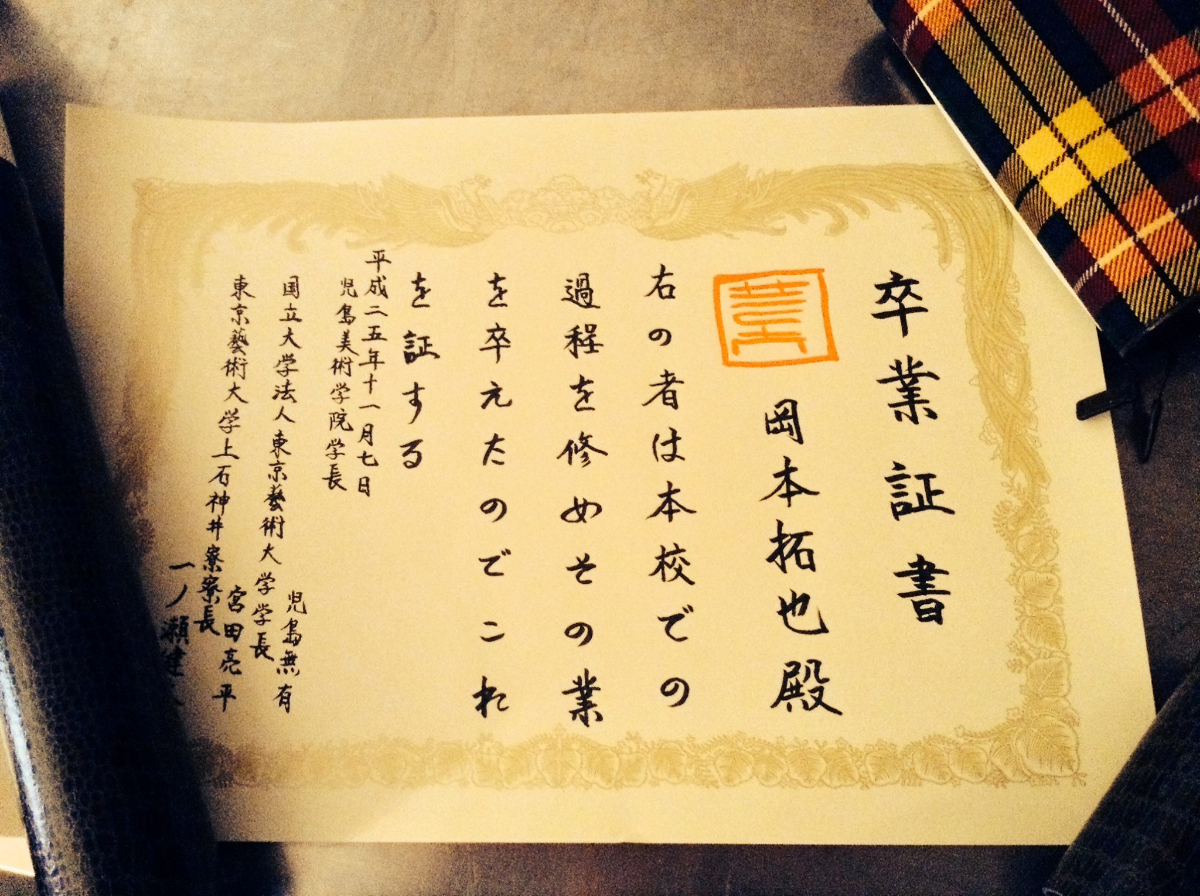 卒業証書
岡本拓也殿
右の者は本校での
過程を修めその業
を卒えたのでこれ
を証する
平成二五年十一月七日
児島美術学院学長
児島無有
国立大学法人東京藝術大学学長
宮田亮平
東京藝術大学上石神井寮寮長
一ノ瀬健